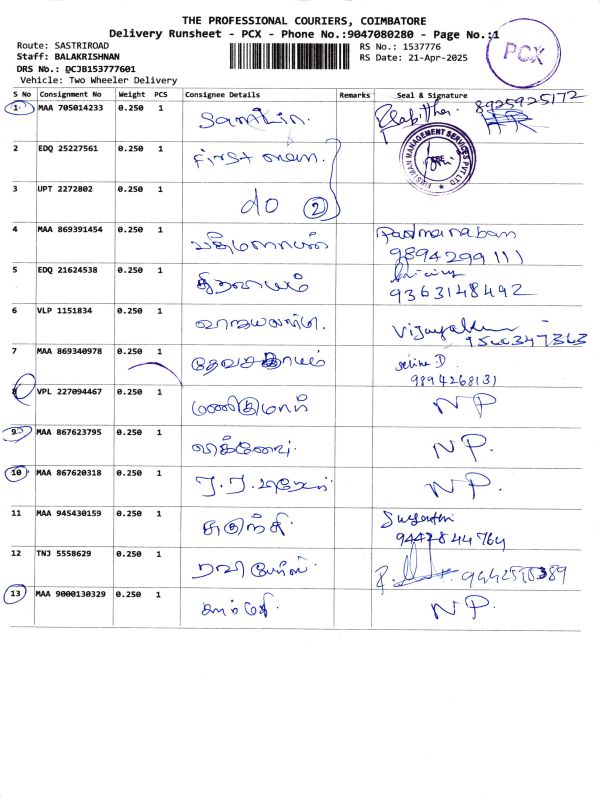 THE PROFESSIONAL COURIERS, COIMBATORE
Delivery Runsheet - PCX - Phone No.:9047080280 - Page No.:1
Route: SASTRIROAD
Staff: BALAKRISHNAN
DRS No.: DCJB153777601
Vehicle: Two Wheeler Delivery
RS No.: 1537776
RS Date: 21-Apr-2025
PCX
S No Consignment No Weight PCS Consignee Details Remarks Seal & Signature
1 MAA 705014233 0.250 1 8925925172
2 EDQ 25227561 0.250 1 First man.
FIRSTMAN MANAGEMENT SERVICES PVT LTD
3 UPT 2272802 0.250 1 do 2
4 MAA 869391454 0.250 1 பத்மநாபன் Padmanaban
9894299111
5 EDQ 21624538 0.250 1
9363148492
6 VLP 1151834 0.250 1
7 MAA 869340978 0.250 1 Seline.D
9894268131
8 VPL 227094467 0.250 1 மணிகுமார் NP
9 MAA 867623795 0.250 1 NP.
10 MAA 867620318 0.250 1 NP.
11 MAA 945430159 0.250 1
9442844764
12 TNJ 5558629 0.250 1
13 MAA 9000130329 0.250 1 NP.